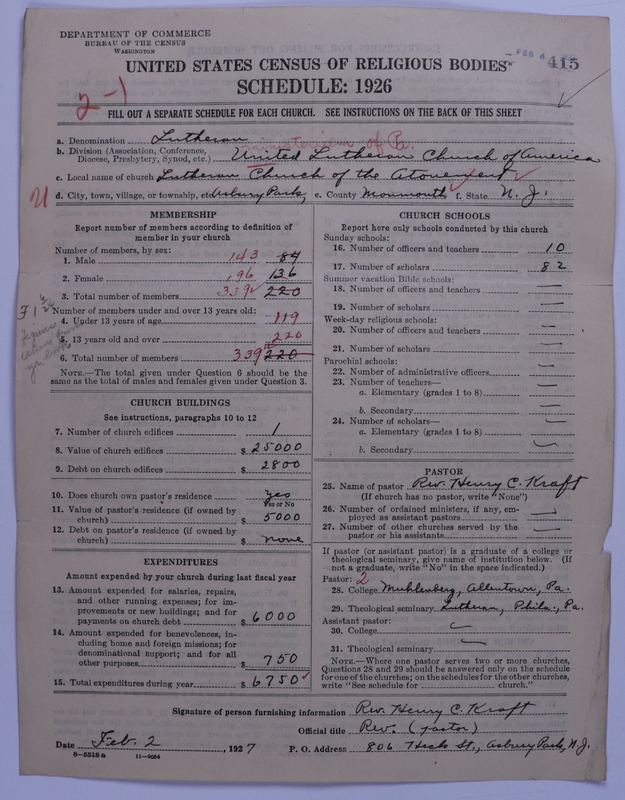 DEPARTMENT OF COMMERCE
BUREAU OF THE CENSUS
WASHINGTON
FEB 4
415
UNITED STATES CENSUS OF RELIGIOUS BODIES
SCHEDULE: 1926
2-1
FILL OUT A SEPARATE SCHEDULE FOR EACH CHURCH. SEE INSTRUCTIONS ON THE BACK OF THIS SHEET
a. Denomination Lutheran
ministerium of Pa.
b. Division (Association, Conference, Diocese, Presbytery, Synod, etc.) United Lutheran Church of America
c. Local name of church Lutheran Church of the Atonement
d. City, town, village, or township, etc. Asbury Park, e. County Monmouth f. State N. J.
MEMBERSHIP
Report number of members according to definition of
member in your church
Number of members, by sex:
1. Male 143 84
2. Female 196 136
3. Total number of members 339 220
Number of members under and over 13 years old:
4. Under 13 years of age 119
5. 13 years old and over 220
6. Total number of members 339 220
NOTE.—The total given under Question 6 should be the
same as the total of males and females given under Question 3.
CHURCH BUILDINGS
See instructions, paragraphs 10 to 12
7. Number of church edifices 1
8. Value of church edifices $ 25000
9. Debt on church edifices $ 2800
10. Does church own pastor's residence yes
Yes or No
11. Value of pastor's residence (if owned by
church) $ 5000
12. Debt on pastor's residence (if owned by
church) $ none
EXPENDITURES
Amount expended by your church during last fiscal year
13. Amount expended for salaries, repairs,
and other running expenses; for im-
provements or new buildings; and for
payments on church debt $ 6000
14. Amount expended for benevolences, in-
cluding home and foreign missions; for
denominational support; and for all
other purposes $ 750
15. Total expenditures during year $ 6750
CHURCH SCHOOLS
Report here only schools conducted by this church
Sunday schools:
16. Number of officers and teachers 10
17. Number of scholars 82
Summer vacation Bible schools:
18. Number of officers and teachers —
19. Number of scholars —
Week-day religious schools:
20. Number of officers and teachers —
21. Number of scholars —
Parochial schools:
22. Number of administrative officers —
23. Number of teachers—
a. Elementary (grades 1 to 8) —
b. Secondary —
24. Number of scholars—
a. Elementary (grades 1 to 8) —
b. Secondary —
PASTOR
25. Name of pastor Rev. Henry C. Kraft
(If church has no pastor, write "None")
26. Number of ordained ministers, if any, em-
ployed as assistant pastors —
27. Number of other churches served by the
pastor or his assistants —
If pastor (or assistant pastor) is a graduate of a college or
theological seminary, give name of institution below. (If
not a graduate, write "No" in the space indicated.)
Pastor: 2
28. College Muhlenberg, Allentown, Pa.
29. Theological seminary Lutheran, Phila., Pa.
Assistant pastor:
30. College —
31. Theological seminary —
NOTE.—Where one pastor serves two or more churches,
Questions 28 and 29 should be answered only on the schedule
for one of the churches; on the schedules for the other churches,
write "See schedule for church."
Signature of person furnishing information Rev. Henry C. Kraft
Official title Rev. (pastor)
Date Feb. 2, 1927 P. O. Address 806 Heck St., Asbury Park, N. J.
8—5518 a 11—9024